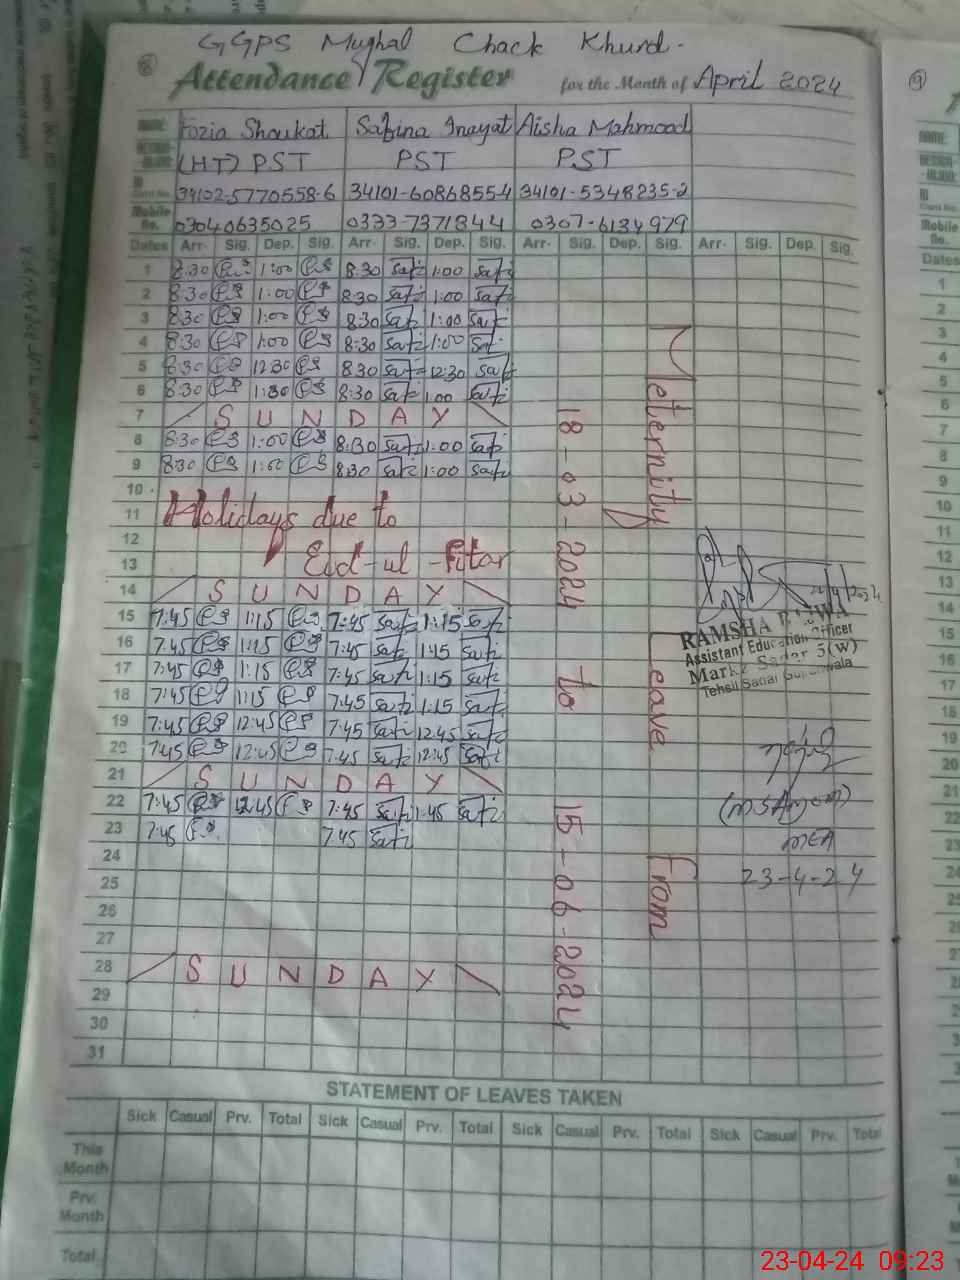 GGPS Mughal Chack Khurd.
8 Attendance Register for the Month of April 2024
NAME Fozia Shoukat Safina Inayat Aisha Mahmood
(HT) PST PST PST
ID Card No. 34102-5770558-6 34101-60868554 34101-5348235-2
Mobile No. 03040635025 0333-7371844 0307-6134979
Dates Arr. Sig. Dep. Sig. Arr. Sig. Dep. Sig. Arr. Sig. Dep. Sig. Arr. Sig. Dep. Sig.
1 8:30 1:00 8:30 1:00
2 8:30 1:00 8:30 1:00
3 8:30 1:00 8:30 1:00
4 8:30 1:00 8:30 1:00
5 8:30 12:30 8:30 12:30
6 8:30 1:30 8:30 1:00
7 SUNDAY
8 8:30 1:00 8:30 1:00
9 8:30 1:00 8:30 1:00
10
11 Holidays due to
12
13 Eid-ul-Fitar
14 SUNDAY
15 7:45 1:15 7:45 1:15
16 7:45 1:15 7:45 1:15
17 7:45 1:15 7:45 1:15
18 7:45 1:15 7:45 1:15
19 7:45 12:45 7:45 12:45
20 7:45 12:45 7:45 12:45
21 SUNDAY
22 7:45 12:45 7:45 1:45
23 7:45 7:45
24
25
26
27
28 SUNDAY
29
30
31
From Leave Meternity
18-03-2024 to 15-06-2024
22/4/2024
RAMSHA
Assistant Education Officer
Markz Sadar 5(W)
Tehsil Sadar Gujranwala
MEA
23-4-24
STATEMENT OF LEAVES TAKEN
Sick Casual Prv. Total Sick Casual Prv. Total Sick Casual Prv. Total Sick Casual Prv. Total
This Month
Prv. Month
Total
9
NAME
ID
Mobile No.
Dates
1
2
3
4
5
6
7
8
9
10
11
12
13
14
15
16
17
18
19
20
21
22
23
24
23-04-24 09:23